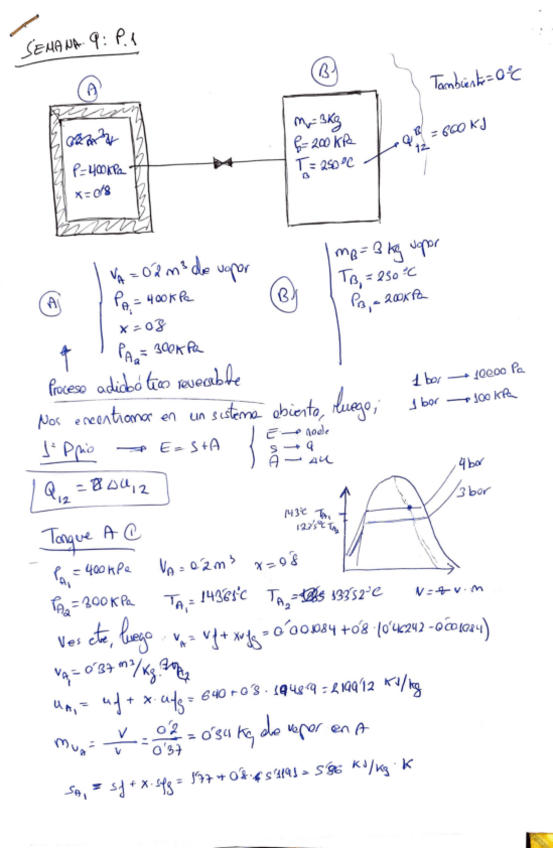 SEMANA 9: P.1
A
B
Tambiente = 0°C
P = 400 kPa
x = 0'8
m = 3 Kg
P = 200 kPa
T_B = 250 °C
Q_12^B = 600 KJ
A
V_A = 0'2 m³ de vapor
P_A1 = 400 KPa
x = 0'8
P_A2 = 300 KPa
B
m_B = 3 kg vapor
T_B1 = 250 °C
P_B1 = 200 KPa
Proceso adiabático reversible
Nos encontramos en un sistema abierto, luego;
1 bar → 100 KPa
1° Ppio → E = S + A
E → nade
S → Q
A → Δu
Q_12 = Δu_12
4 bar
3 bar
Tanque A ①
P_A1 = 400 KPa V_A = 0'2 m³ x = 0'8
P_A2 = 300 KPa T_A1 = 143'61°C T_A2 = 133'52°C
V es cte, luego v_A = v_f + x v_fg = 0'001084 + 0'8 · (0'46242 - 0'001084)
v_A1 = 0'37 m³/Kg
u_A1 = u_f + x · u_fg = 640 + 0'8 · 1948'9 = 2199'12 KJ/kg
m_VA = V/v = 0'2/0'37 = 0'54 Kg de vapor en A
s_A1 = s_f + x · s_fg = 1'77 + 0'8 · 5'1191 = 5'86 KJ/kg · K